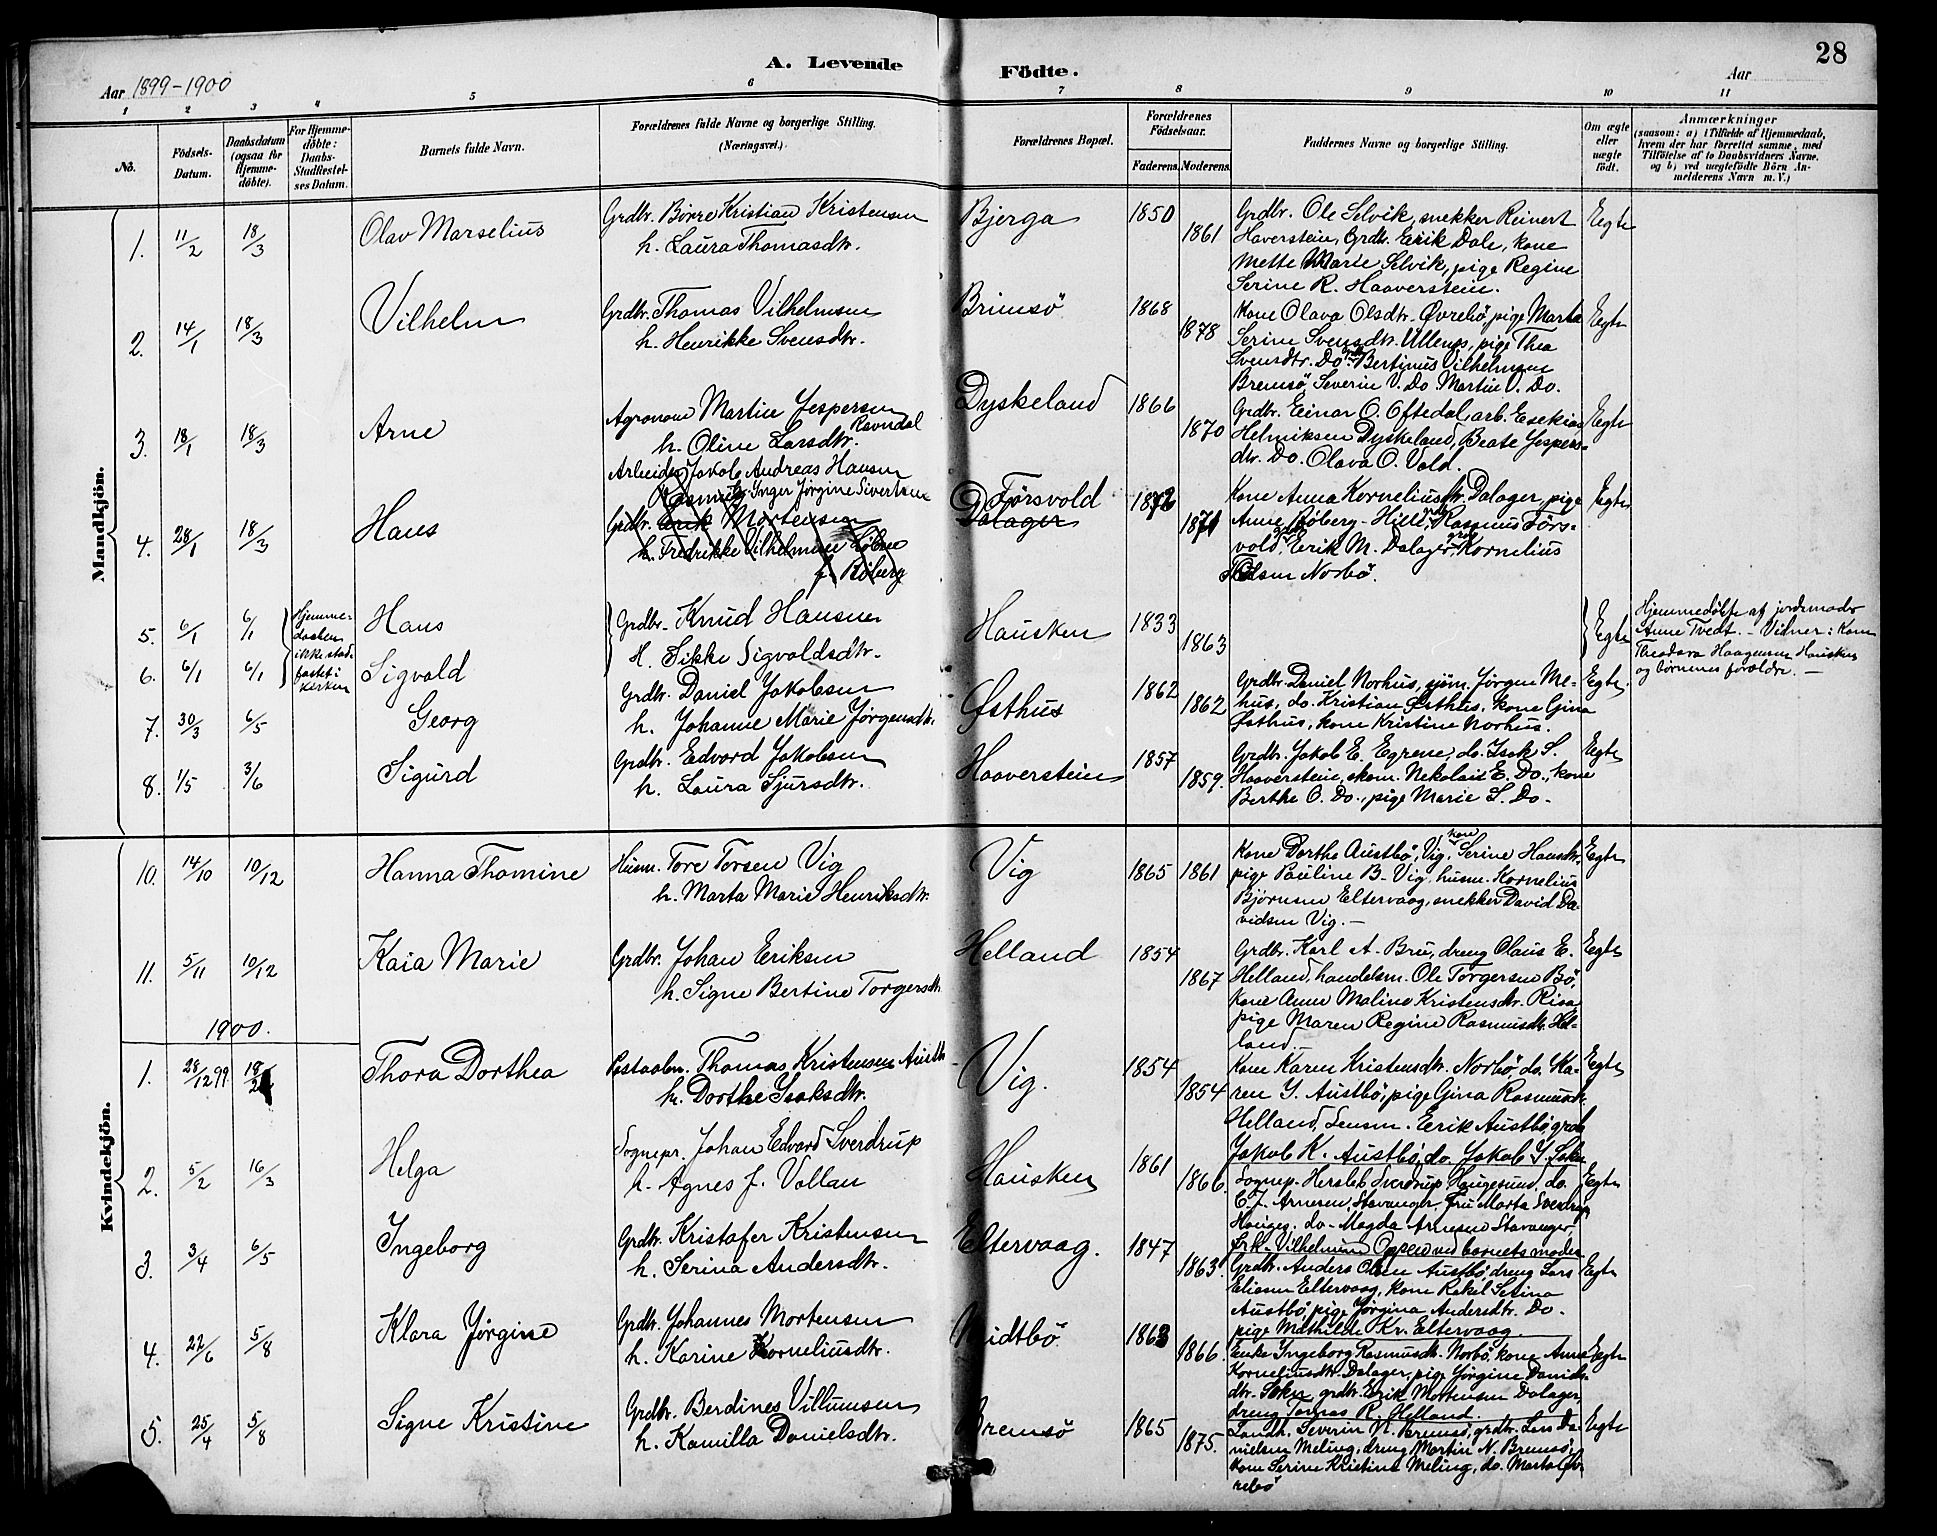 28
A. Levende Födte.
Aar 1899-1900
Aar
1 2 3 4 5 6 7 8 9 10 11
No.
Födsels-Datum.
Daabsdatum (ogsaa for Hjemme-döbte).
For Hjemme-döbte: Daabs-Stadfæstel-ses Datum.
Barnets fulde Navn.
Forældrenes fulde Navne og borgerlige Stilling. (Næringsvei.)
Forældrenes Bopæl.
Forældrenes Födselsaar.
Faderens. Moderens.
Faddernes Navne og borgerlige Stilling.
Om ægte eller uægte födt.
Anmærkninger
(saasom: a) i Tilfælde af Hjemmedaab, hvem der har forrettet samme, med Tilföielse af to Daabsvidners Navne, og b) ved uægtefödte Börn An-melderens Navn m. V.)
Mandkjön.
1. 11/2 18/3 Olav Marselius
Grdbr. Börre Kristian Kristensen
h. Laura Thomasdtr.
Bjerga 1850 1861
Grdbr. Ole Selvik, snekker Reinert
Haverstein, Grdbr. Eirik Dale, kone
Mette Marie Selvik, pige Regine
Serine R. Haaverstein.
Egte
2. 14/1 18/3 Vilhelm
Grdbr. Thomas Vilhelmsen
h. Henrikke Svensdtr.
Brimsö 1868 1878
Kone Olava Olsdtr. Øvrebö, pige Marta
Serine Svensdtr. Ullenes, pige Thea
Svensdtr. Do. Bertinius Vilhelmsen
Bremsö, Severin V. Do. Martin V. Do.
Egte
3. 18/1 18/3 Arne
Agronom Martin Jespersen Ravndal
h. Oline Larsdtr.
Dyskeland 1866 1870
Grdbr. Einar O. Oftedal, arb. Esekias
Helmiksen Dyskeland, Beate Jespers-
dtr. Do. Olava O. Vold.
Egte
4. 28/1 18/3 Hans
Arbeider Jakob Andreas Hansen
Inger Jörgine Sivertsen
Grdbr. Erik Mortensen
h. Fredrikke Vilhelmine
f. Röberg
Försvold
Dalager
1872 1871
Kone Anna Korneliusdtr. Dalager, pige
Anne Röberg-Hille, Rasmus Förs-
vold, Erik M. Dalager, Kornelius
Olsen Norbö.
Egte
5. 6/1 6/1 Hans
6. 6/1 6/1 Sigvald
Hjemme-
daaben
ikke stad-
fæstet i
kirken
Grdbr. Knud Hansen
H. Sikke Sigvaldsdtr.
Hausken 1833 1863
Egte
Hjemmedöbte af jordemoder
Anne Tvedt. - Vidner: kone
Theodora Haagensen Hausken
og börnenes forældre. -
7. 30/3 6/5 Georg
Grdbr. Daniel Jakobsen
h. Johanne Marie Jörgensdtr.
Østhus 1862 1862
Grdbr. Daniel Norhus, sjöm. Jörgen Me-
hus, do. Kristian Østhus, kone Gina
Østhus, kone Kristine Norhus.
Egte
8. 1/5 3/6 Sigurd
Grdbr. Edvard Jakobsen
h. Laura Sjursdtr.
Haaverstein 1857 1859.
Grdbr. Jakob E. Egrene, do. Isak S.
Haaverstein, skom. Nekolais E. Do., kone
Berthe O. Do., pige Marie S. Do.
Egte
Kvindekjön.
10. 14/10 10/12 Hanna Thomine
Husm. Tore Torsen Vig
h. Marta Marie Henriksdtr.
Vig 1865 1861
Kone Dorthe Austbö, Vig, kone Serine Hansdtr.
pige Pauline B. Vig, husm. Kornelius
Björnsen Eltervaag, snekker David Da-
vidsen Vig. -
Egte
11. 5/11 10/12 Kaia Marie
Grdbr. Johan Eriksen
h. Signe Bertine Torgersdtr.
Helland 1854 1867
Grdbr. Karl A. Bru, dreng Olaus E.
Helland, handelsm. Ole Torgersen Bö,
kone Anne Maline Kristensdtr. Risa
pige Maren Regine Rasmusdtr. Hel-
land. -
Egte
1900.
1. 28/12 99 18/2 Thora Dorthea
Postaabn. Thomas Kristensen Austb
h. Dorthe Isaksdtr.
Vig. 1854 1854
Kone Karen Kristensdtr. Norbö, do. Ka-
ren I. Austbö, pige Gina Rasmusdtr.
Helland, Lensm. Eerik Austbö, grdb
Jakob K. Austbö, do. Jakob I. Sokn
Egte
2. 5/2 16/3 Helga
Sognepr. Johan Edvard Sverdrup
h. Agnes f. Vollan
Hausken 1861 1866.
Sognep. Hersleb Sverdrup Haugesund, do.
C. J. Arnesen, Stavanger, Fru Marta Sverdrup
Hauges. do. Magda Arnesen Stavanger,
frk. Vilhelmine Oppen ved barnets moder
Egte
3. 3/4 6/5 Ingeborg
Grdbr. Kristofer Kristensen
h. Serina Andersdtr.
Eltervaag. 1847 1863
Grdbr. Anders Olsen Austbö, dreng Lars
Eliasen Eltervaag, kone Rakel Setina
Austbö, pige Jörgina Andersdtr. Do.
pige Mathilde Kr. Eltervaag.
Egte
4. 22/6 5/8 Klara Jörgine
Grdbr. Johannes Mortensen
h. Karine Korneliusdtr.
Midtbö 1863 1866.
Enke Ingeborg Rasmusdtr. Norbö, kone Anne
Korneliusdtr. Dalager, pige Jörgine Daniels-
dtr. Sokn, grdbr. Erik Mortensen Dalager,
dreng Tomas R. Helland.
Egte
5. 25/4 5/8 Signe Kristine
Grdbr. Berdines Villumsen
h. Kamilla Danielsdtr.
Bremsö 1865 1875.
Landh. Severin V. Bremsö, grdbr. Lars Da-
nielsen Meling, dreng Martin V. Bremsö,
kone Serine Kristine Meling, do. Marta Öv-
rebö
Egte